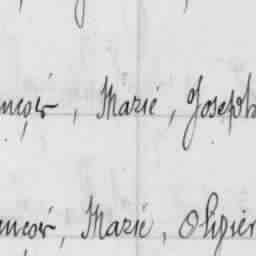 ançois, Marie, Joseph
ançois, Marie, Olivier